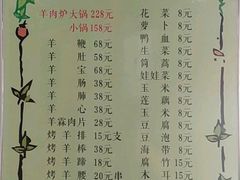 羊肉炉大锅228元
小锅158元
羊鞭68元
羊肚58元
羊宝58元
羊肠38元
羊肺38元
羊心38元
羊霖肉片28元
烤羊排15元支
烤羊棒38元
烤羊蹄18元
烤羊腰20元串
花菜8元
萝卜8元
鸭血8元
生菜8元
茼蒿8元
娃娃菜8元
玉米8元
莲藕8元
豆泡8元
豆腐8元
海带8元
腐竹15元
木耳15元